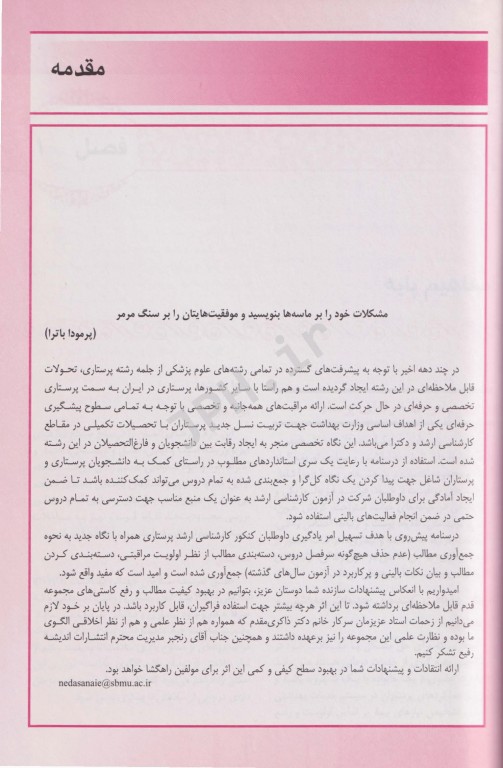 مقدمه
مشکلات خود را بر ماسه‌ها بنویسید و موفقیت‌هایتان را بر سنگ مرمر
(پرمودا باترا)
در چند دهه اخیر با توجه به پیشرفت‌های گسترده در تمامی رشته‌های علوم پزشکی از جلمه رشته پرستاری، تحولات
قابل ملاحظه‌ای در این رشته ایجاد گردیده است و هم راستا با سایر کشورها، پرستاری در ایران به سمت پرستاری
تخصصی و حرفه‌ای در حال حرکت است. ارائه مراقبت‌های همه‌جانبه و تخصصی با توجه به تمامی سطوح پیشگیری
حرفه‌ای یکی از اهداف اساسی وزارت بهداشت جهت تربیت نسل جدید پرستاران با تحصیلات تکمیلی در مقاطع
کارشناسی ارشد و دکترا می‌باشد. این نگاه تخصصی منجر به ایجاد رقابت بین دانشجویان و فارغ‌التحصیلان در این رشته
شده است. استفاده از درسنامه با رعایت یک سری استانداردهای مطلوب در راستای کمک به دانشجویان پرستاری و
پرستاران شاغل جهت پیدا کردن یک نگاه کل‌گرا و جمع‌بندی شده به تمام دروس می‌تواند کمک‌کننده باشد تا ضمن
ایجاد آمادگی برای داوطلبان شرکت در آزمون کارشناسی ارشد به عنوان یک منبع مناسب جهت دسترسی به تمام دروس
حتمی در ضمن انجام فعالیت‌های بالینی استفاده شود.
درسنامه پیش‌روی با هدف تسهیل امر یادگیری داوطلبان کنکور کارشناسی ارشد پرستاری همراه با نگاه جدید به نحوه
جمع‌آوری مطالب (عدم حذف هیچ‌گونه سرفصل دروس، دسته‌بندی مطالب از نظر اولویت مراقبتی، دسته‌بندی کردن
مطالب و بیان نکات بالینی و پرکاربرد در آزمون سال‌های گذشته) جمع‌آوری شده است و امید است که مفید واقع شود.
امیدواریم با انعکاس پیشنهادات سازنده شما دوستان عزیز، بتوانیم در بهبود کیفیت مطالب و رفع کاستی‌های مجموعه
قدم قابل ملاحظه‌ای برداشته شود. تا این اثر هرچه بیشتر جهت استفاده فراگیران، قابل کاربرد باشد. در پایان بر خود لازم
می‌دانیم از زحمات استاد عزیزمان سرکار خانم دکتر ذاکری‌مقدم که همواره هم از نظر علمی و هم از نظر اخلاقی الگوی
ما بوده و نظارت علمی این مجموعه را نیز برعهده داشتند و همچنین جناب آقای رنجبر مدیریت محترم انتشارات اندیشه
رفیع تشکر کنیم.
ارائه انتقادات و پیشنهادات شما در بهبود سطح کیفی و کمی این اثر برای مولفین راهگشا خواهد بود.
nedasanaie@sbmu.ac.ir